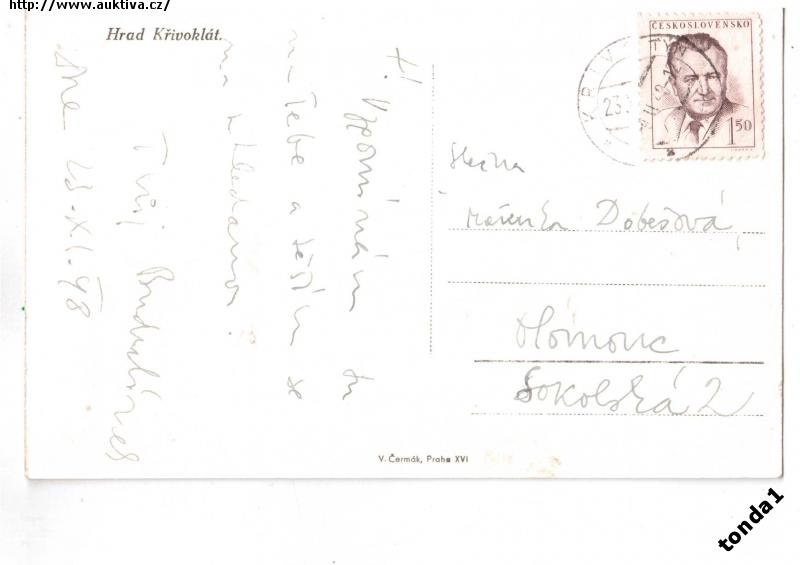 http://www.auktiva.cz/
Hrad Křivoklát.
ČESKOSLOVENSKO
1 50
KŘIV
23
Vzpomínám tu
na Tebe a těším se
na shledanou.
Tvůj
Dne 23.XI.48
Slečna
Mařenka Dobešová,
Olomouc
Sokolská 2
V. Čermák, Praha XVI
tonda1